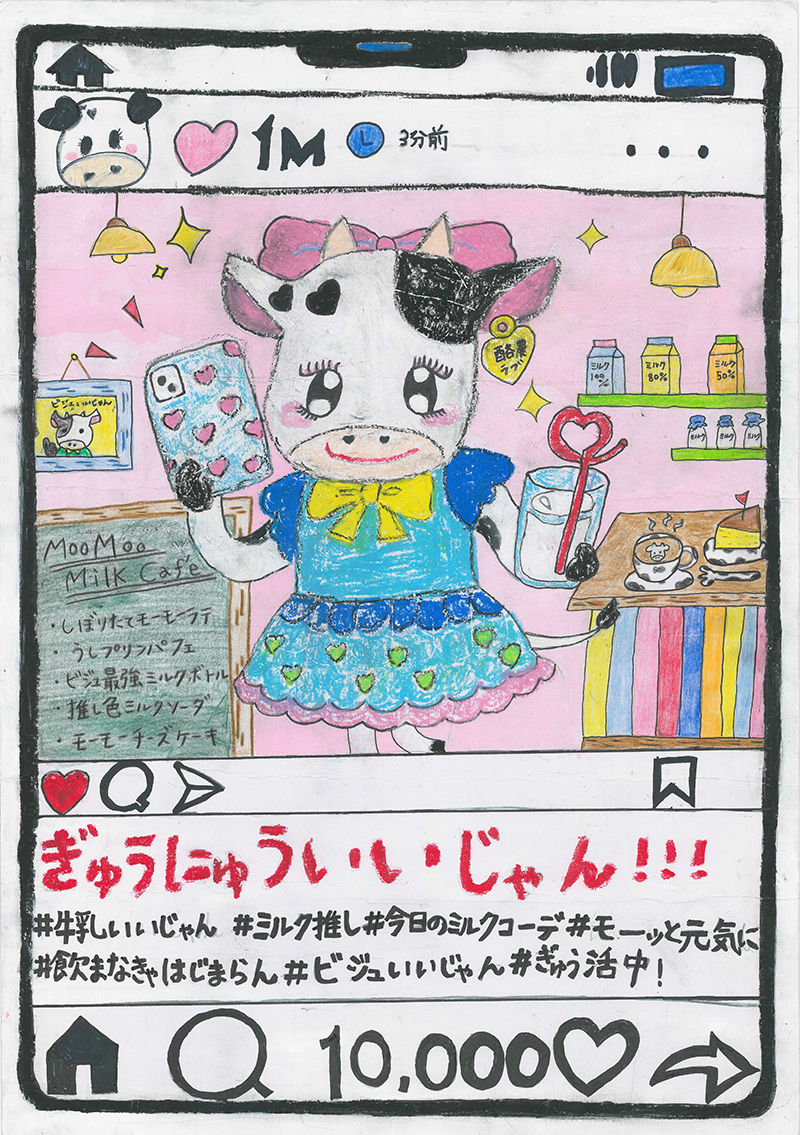 1M L 3分前
酪農
ラブ
ビジュいいじゃん
ミルク
100
%
ミルク
80%
ミルク
50%
ミルク ミルク ミルク
MooMoo
Milk Cafe
・しぼりたてモーモーラテ
・うしプリンパフェ
・ビジュ最強ミルクボトル
・推し色ミルクソーダ
・モーモーチーズケーキ
ぎゅうにゅういいじゃん!!!
#牛乳しいいじゃん #ミルク推し#今日のミルクコーデ#モーッと元気に
#飲まなきゃはじまらん#ビジュいいじゃん#ぎゅう活中!
10,000